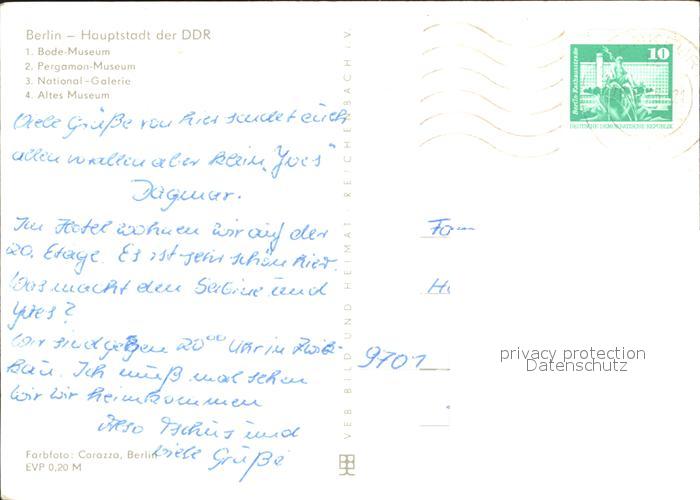 Berlin – Hauptstadt der DDR
1. Bode-Museum
2. Pergamon-Museum
3. National-Galerie
4. Altes Museum
Viele Grüße von hier sendet euch
allen vor allen aber klein "Yves"
Dagmar.
Im Hotel wohnen wir auf der
20. Etage. Es ist sehr schön hier.
Was macht denn Sabine und
Yves?
Wir sind gegen 20⁰⁰ Uhr in Zwik-
kau. Ich muß mal sehen
wir heimkommen
Also Tschüs und
Viele Grüße
Farbfoto: Carazza, Berlin
EVP 0,20 M
VEB BILD UND HEIMAT REICHENBACH i. V.
10
Berlin Rathausstraße
DEUTSCHE DEMOKRATISCHE REPUBLIK
Fam
9701
privacy protection
Datenschutz